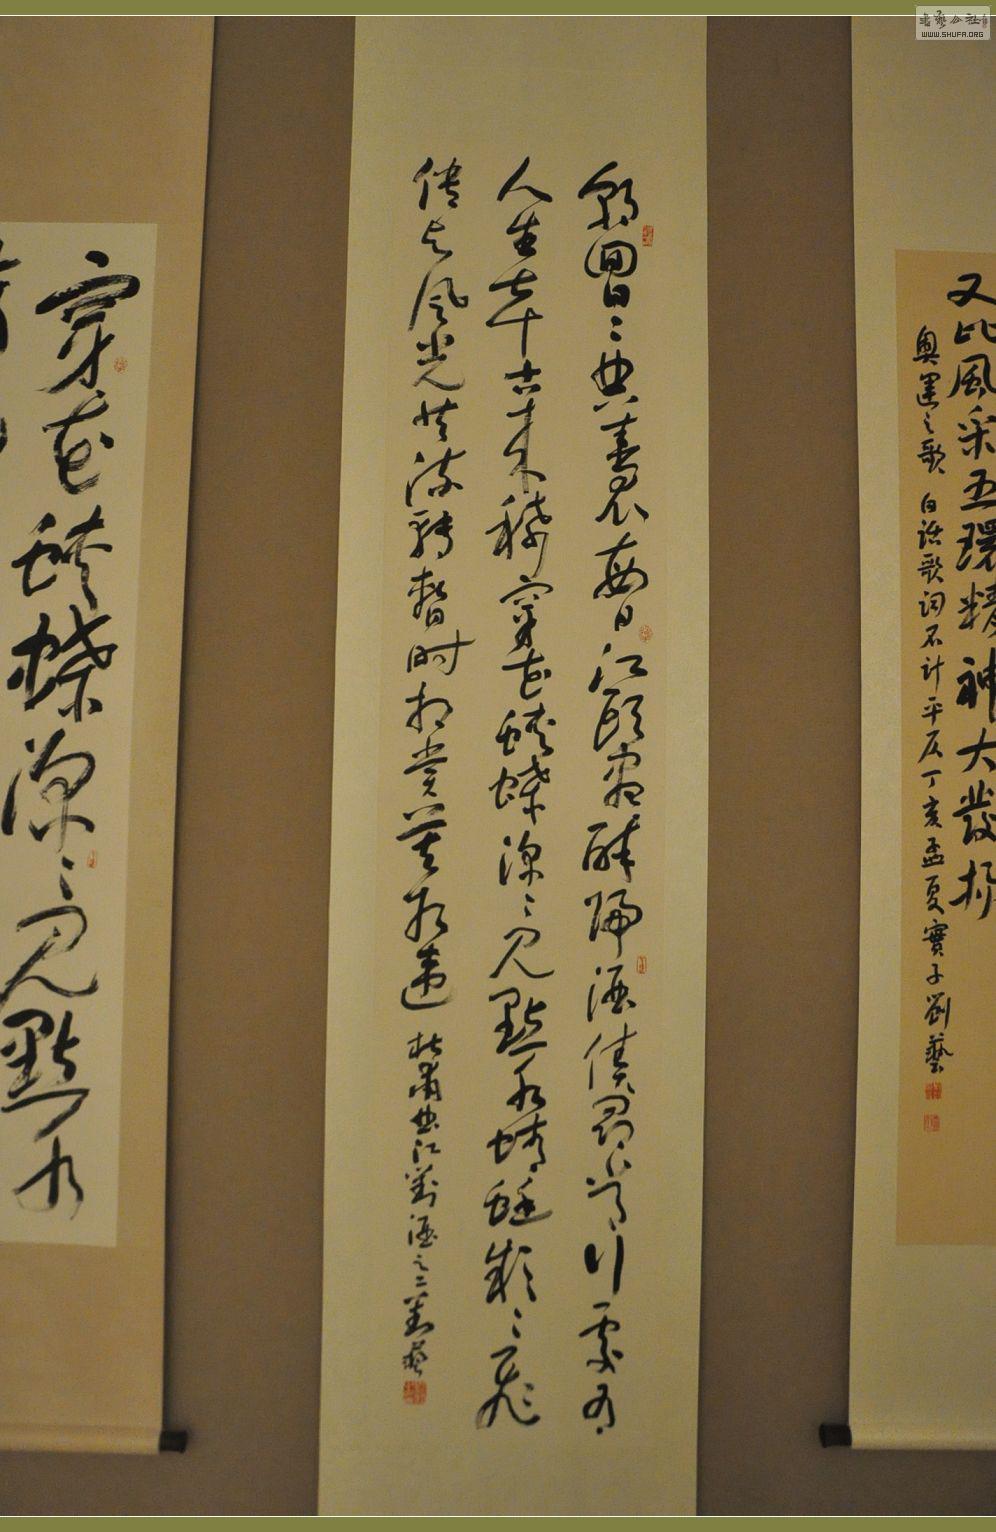 書藝公社
WWW.SHUFA.ORG
又比風采五環精神大發揚
奥運之歌 白話歌詞不計平仄丁亥孟夏寶子劉藝
朝回日〻典春衣每日江頭盡醉歸酒債尋常行處有
人生七十古来稀穿花蛺蝶深〻見點水蜻蜓款〻飛
傳语风光共流轉暫时相賞莫相違 杜甫曲江對酒之二劉藝
穿花蛺蝶深〻見點水